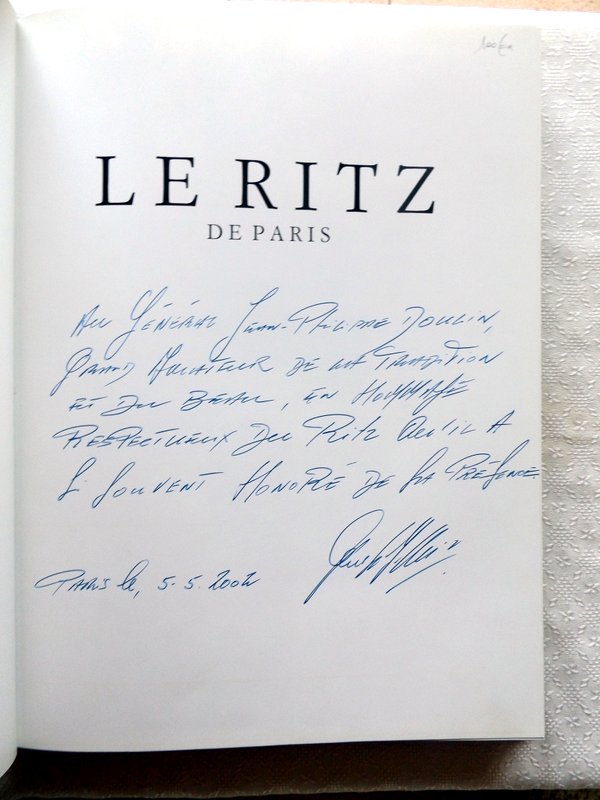 LE RITZ
DE PARIS
Au Général Jean-Philippe Douin,
Grand Amateur de la Tradition
et du Beau, en Hommage
Respectueux du Ritz qu'il a
si souvent Honoré de sa Présence.
Paris le, 5.5.2002